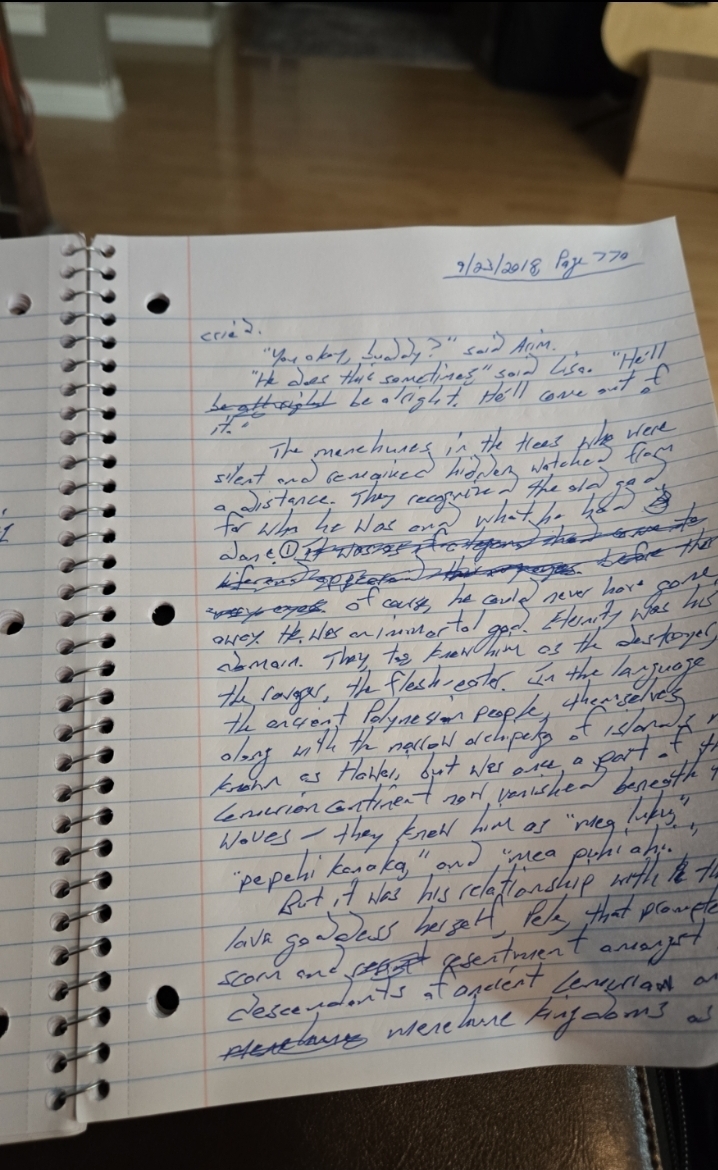 9/23/2018 Page 770
cried.
"You okay, buddy?" said Arim.
"He does this sometimes," said Lisa. "He'll
be all right be alright. He'll come out of
it."
The menehunes in the trees who were
silent and remained hidden watched from
a distance. They recognized the old god
for who he was and what he had
done. ① it was as if a legend had come to
life and appeared before their
very eyes of course, he could never have gone
away. He was an immortal god. Eternity was his
domain. They, too knew him as the destroyer,
the ravager, the flesh-eater. In the language
the ancient Polynesian people, themselves
along with the narrow archipelago of islands
known as Hawaii, but was once a part of th
Lemurian continent now vanished beneath
waves – they knew him as "mea luku",
"pepehi kanaka," and "mea puhi ahi."
But it was his relationship with th
lava goddess herself, Pele, that prompte
scorn and resentment amongst
descendants of ancient Lemurian an
menehune menehune kingdoms as